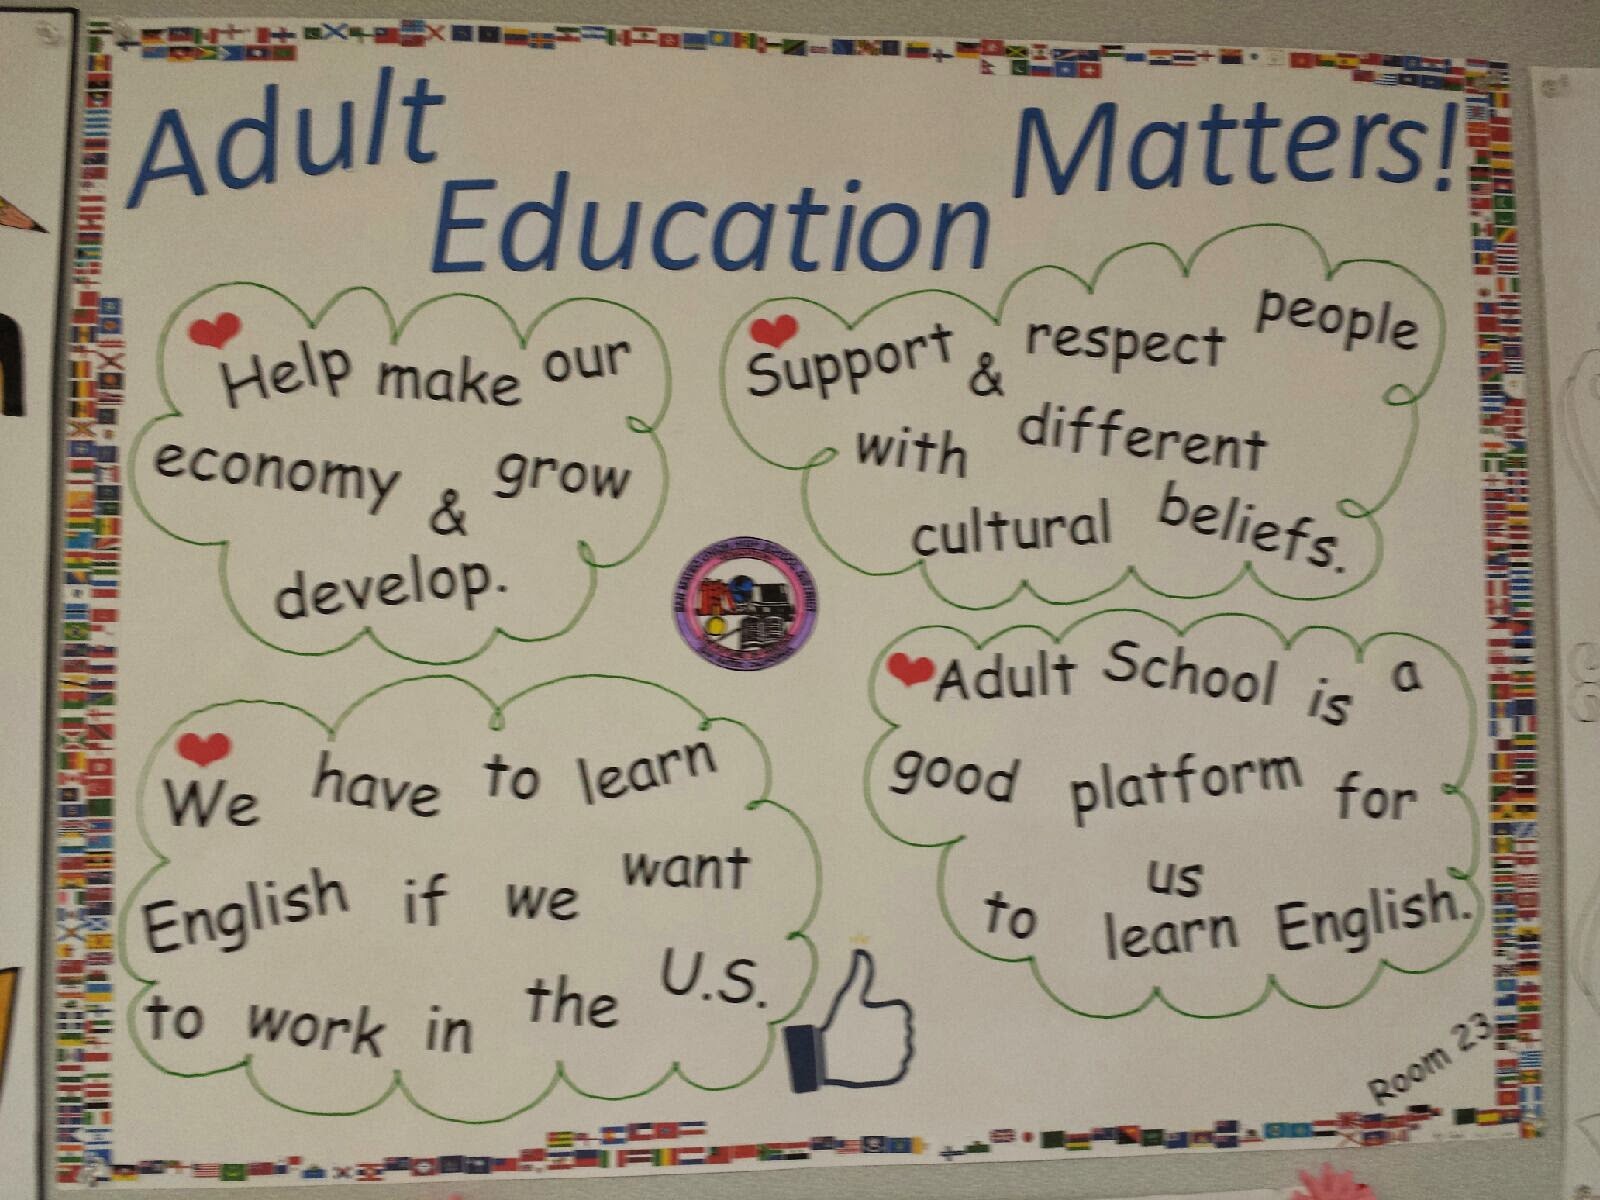 Adult Education Matters!
Help make our
economy & grow
develop.
Support & respect people
with different
cultural beliefs.
SAN MATEO UNION HIGH SCHOOL DISTRICT
We have to learn
English if we want
to work in the U.S.
Adult School is a
good platform for
us
to learn English.
Room 23